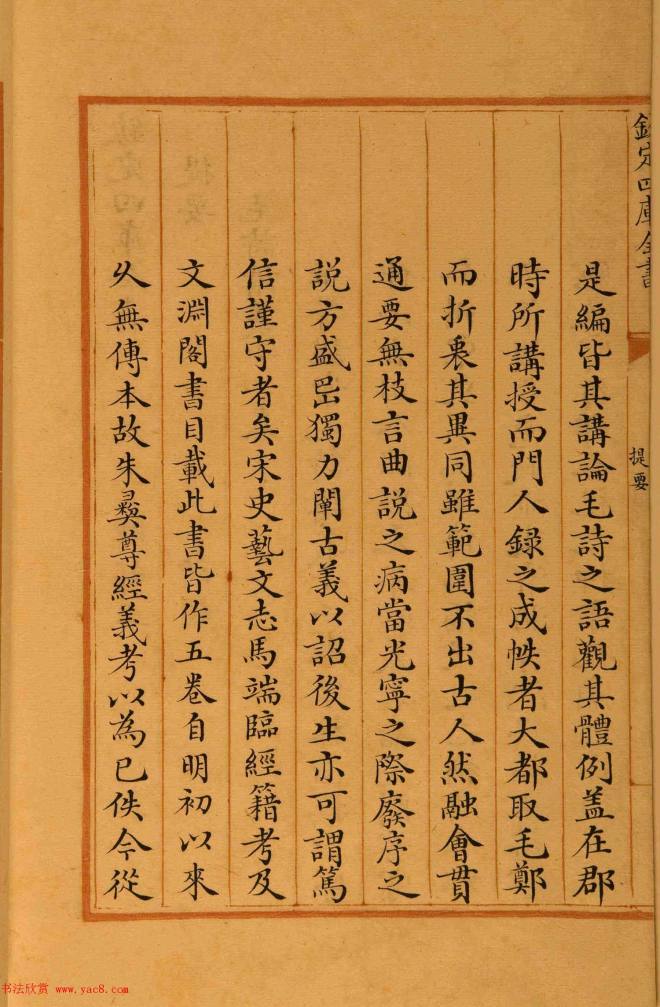 欽定四庫全書
提要
是編皆其講論毛詩之語觀其體例盖在郡
時所講授而門人録之成帙者大都取毛鄭
而折衷其異同雖範圍不出古人然融會貫
通要無枝言曲說之病當光寧之際廢序之
說方盛岊獨力闡古義以詔後生亦可謂篤
信謹守者矣宋史藝文志馬端臨經籍考及
文淵閣書目載此書皆作五卷自明初以來
乆無傳本故朱彛尊經義考以為已佚今從
书法欣赏 www.yac8.com